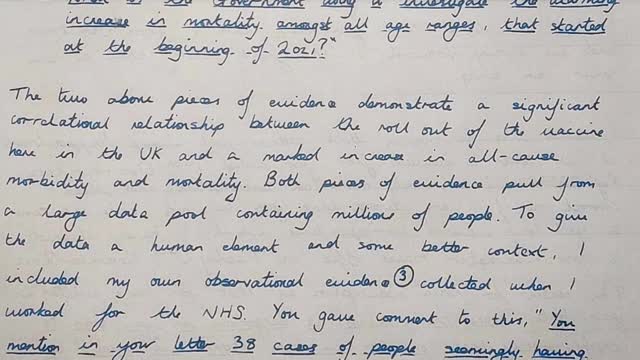 of the Government doing to investigate the alarming
increase in mortality amongst all age ranges, that started
at the beginning of 2021?"
The two above pieces of evidence demonstrate a significant
correlational relationship between the roll out of the vaccine
here in the UK and a marked increase in all-cause
morbidity and mortality. Both pieces of evidence pull from
a large data pool containing millions of people. To give
the data a human element and some better context, I
included my own observational evidence ③ collected when I
worked for the NHS. You gave comment to this, "You
mention in your letter 38 cases of people seemingly having